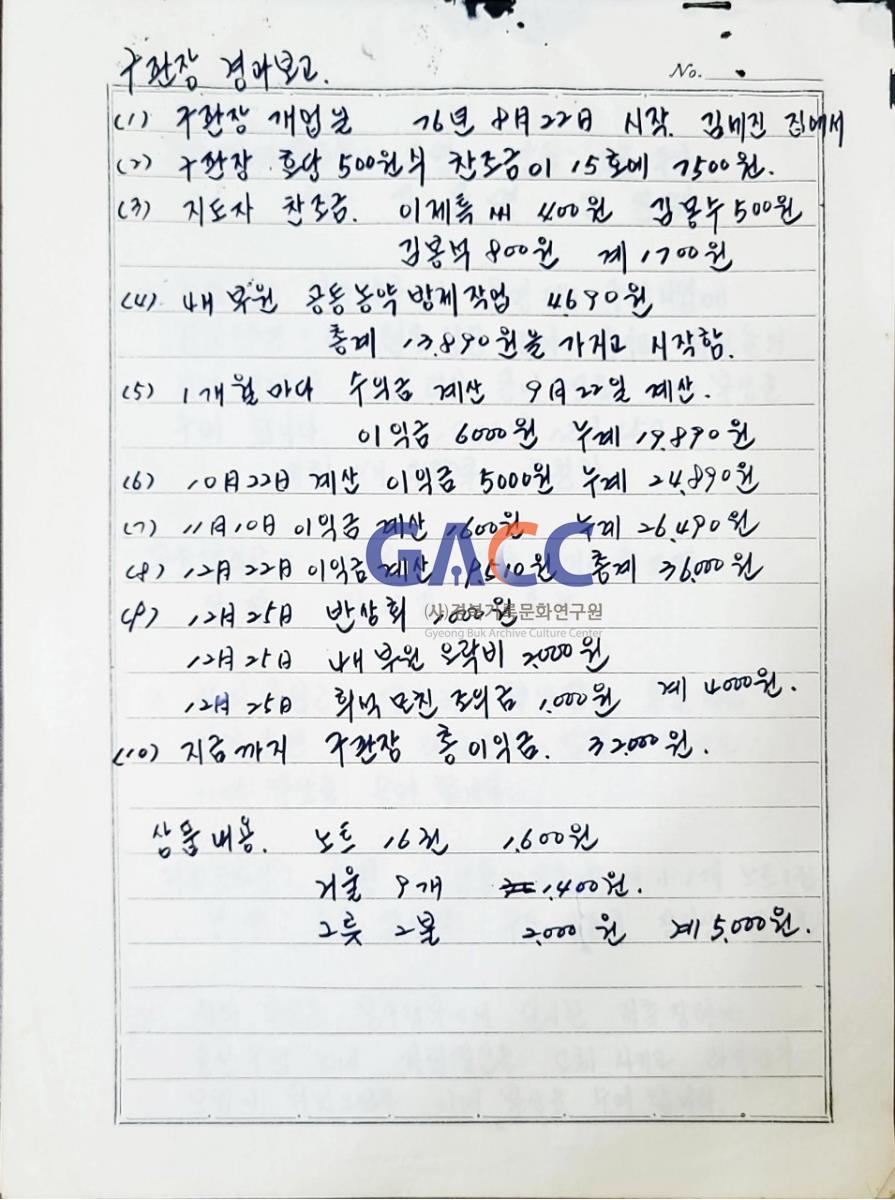 구판장 경과보고.
No.
(1) 구판장 개업날 76년 8月 22日 시작. 김미진 집에서
(2) 구판장 호당 500원씩 찬조금이 15호에 7500원.
(3) 지도자 찬조금. 이제특씨 400원 김몽수 500원
김몽석 800원 계 1700원
(4) 4H 부원 공동농약방제작업 4,690원
총계 13,890원을 가지고 시작함.
(5) 1개월마다 수익금 계산 9月 22일 계산.
이익금 6000원 누계 19,890원
(6) 10月 22日 계산 이익금 5000원 누계 24,890원
(7) 11月 10日 이익금 계산 1,600원 누계 26,490원
(8) 12月 22日 이익금 계산 9,510원 총계 36,000원
(9) 12月 25日 반상회 1,000원
12月 25日 4H 부원 오락비 2,000원
12月 25日 희석 모친 조의금 1,000원 계 4000원.
(10) 지금까지 구판장 총이익금. 32,000원.
상품내용. 노트 16권 1,600원
거울 9개 1,400원.
그릇 2불 2,000원 계 5,000원.
GACC
(사)경북기록문화연구원
Gyeong Buk Archive Culture Center